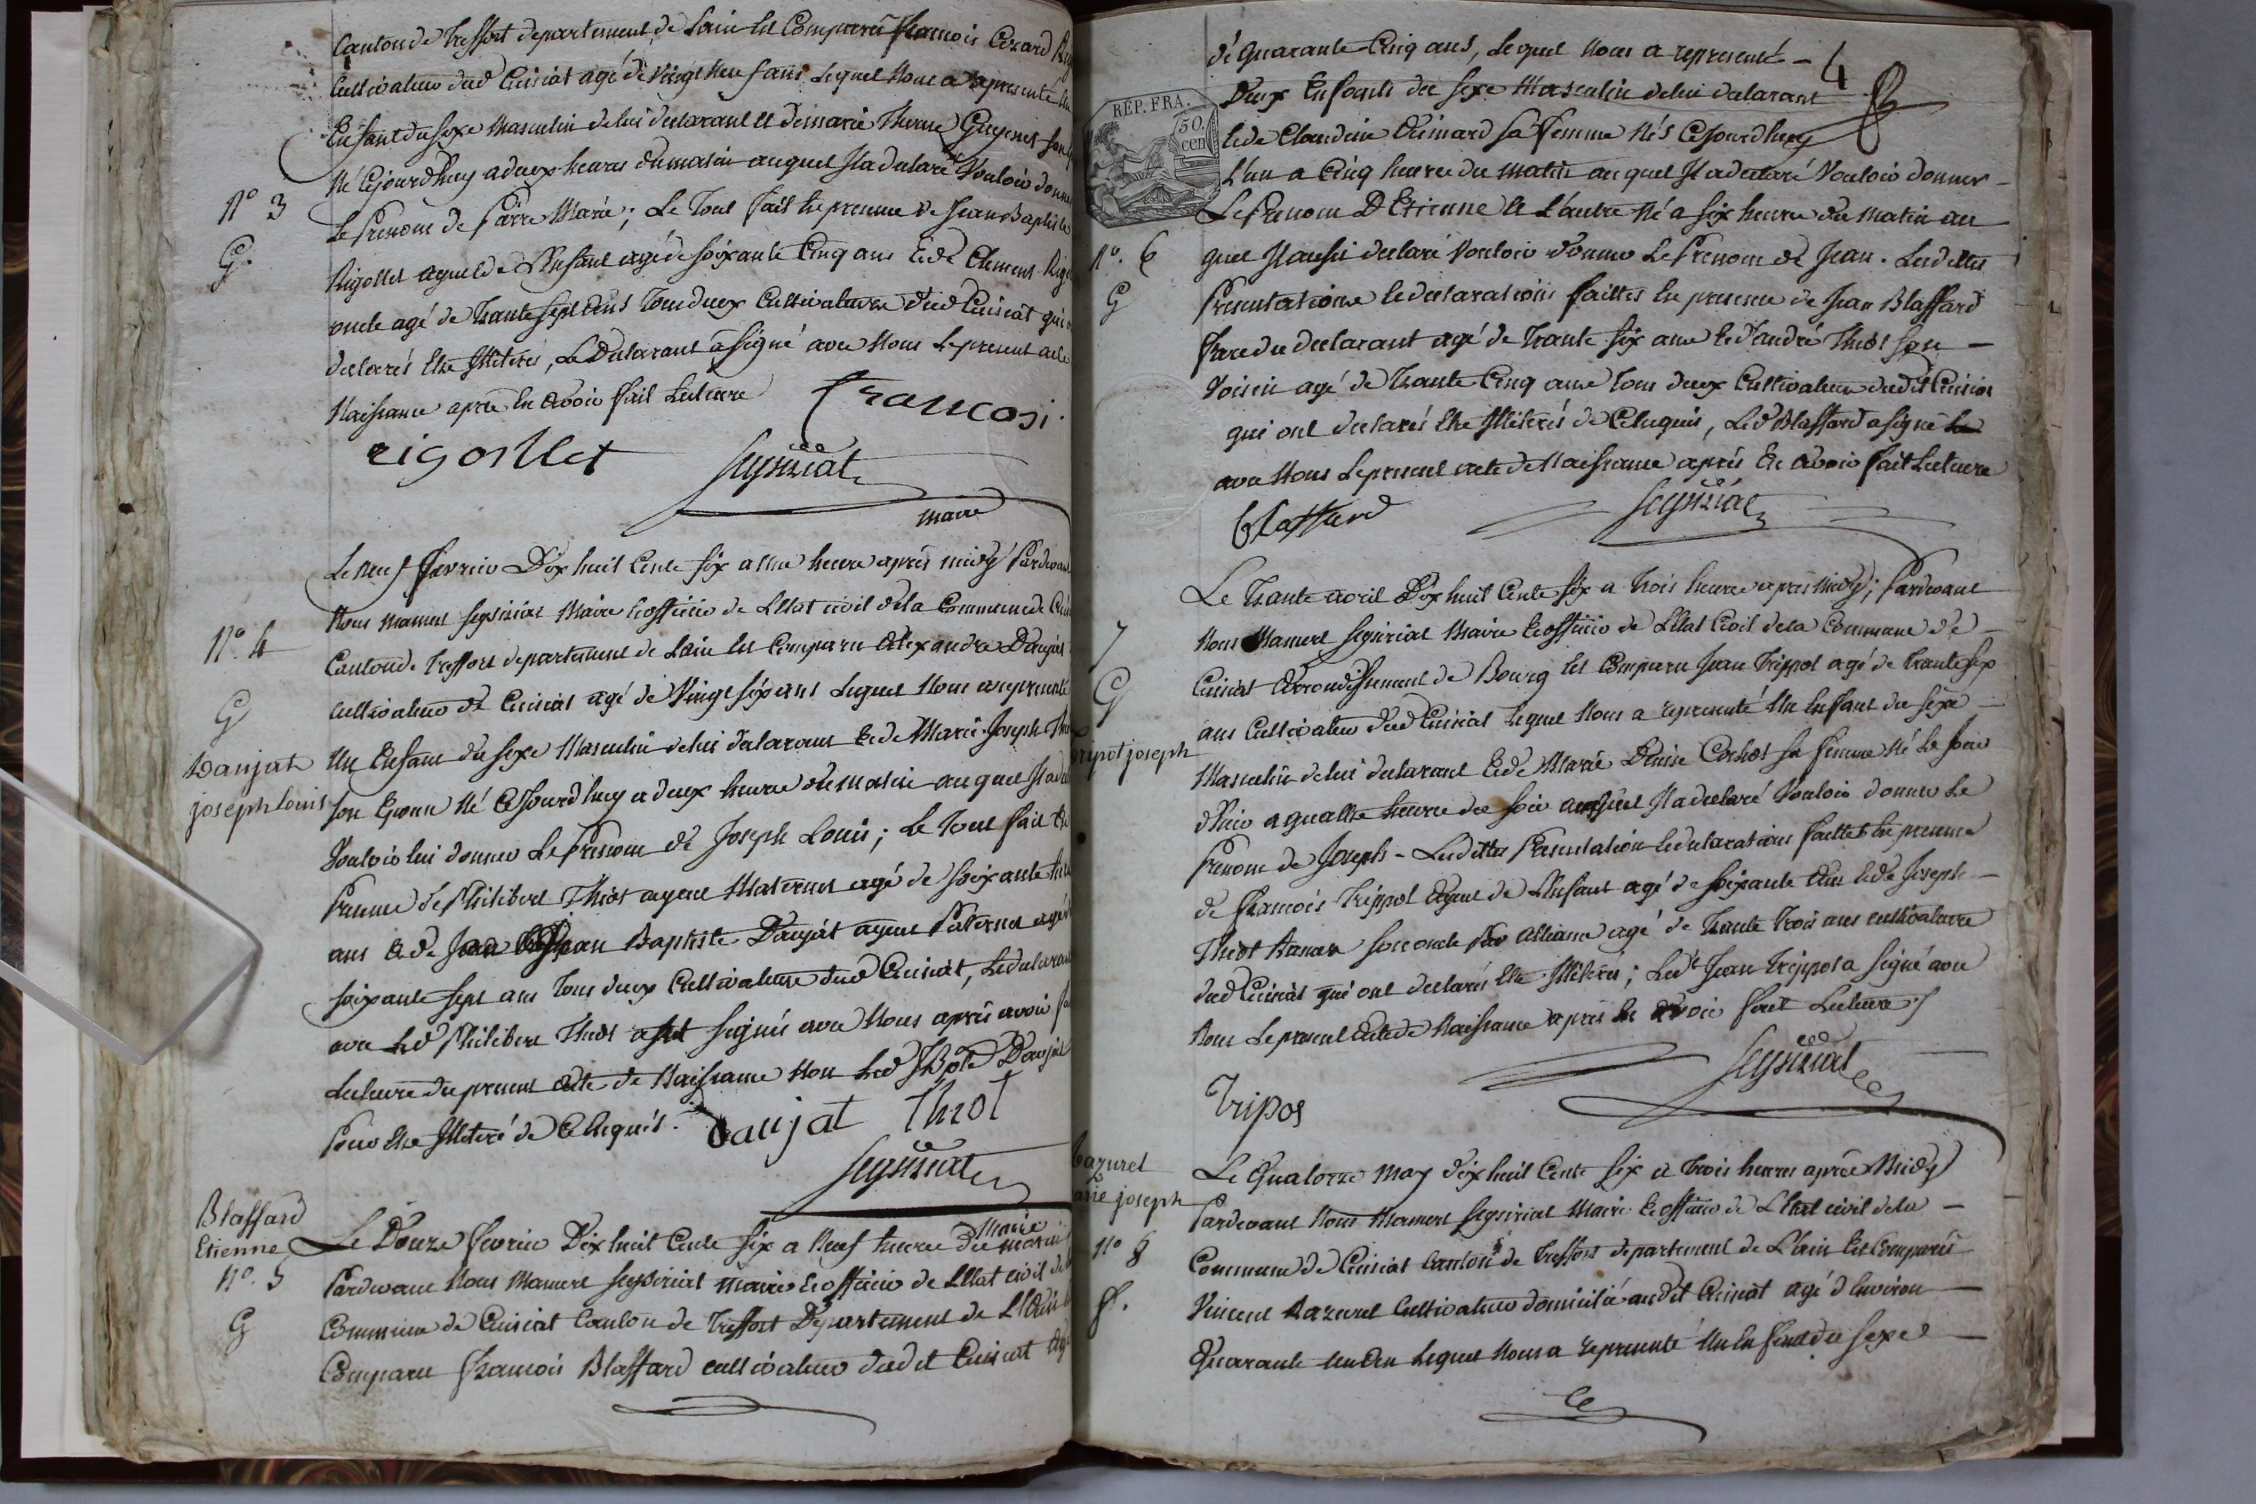 Canton de Treffort departement de Lain Est Comparu francois Cerard
Cultivateur dud Cuisiat agé de Vingt Neuf ans Lequel Nous a representé
Enfant du Sexe Masculin de lui declarant et de marie
Né Cejourdhuy a deux heures du matin auquel Il a declaré Vouloir donner
N° 3
Le Prenom de Pierre Marie; Le Tout fait En presence de Jean Baptiste
G.
Rigollet ayeul de L'Enfant agé de soixante Cinq ans Et de Clement
oncle agé de Trante Sept ans Tous deux Cultivateurs dud Cuisiat qui
declarés Etre Illiterés, Le Declarant a signé avec Nous Le present acte
Naissance apres En avoir fait Lecture
francosi.
rigollet
Seysiriat
maire
Le Neuf fevrier Dix huit Cents Six a une heure après midy Pardevant
Nous Mamert Seysiriat Maire Et officier de L'Etat civil de la Commune de
N° 4
Canton de Treffort departement de Lain Est Comparu Alexandre Daujat
G
Cultivateur de Cuisiat agé de Vingt six ans Lequel Nous a representé
Daujat
Un Enfant du Sexe Masculin de lui declarant Et de Marie Joseph
joseph louis
son Epouse Né Cejourdhuy a deux heures du matin au quel Il a
Vouloir lui donner Le Prenom de Joseph Louis; Le Tout fait En
Presence de Philibert Thiot ayeul Maternel agé de soixante
ans Et de Jean Baptiste Daujat ayeul Paternel agé
soixante sept ans Tous deux Cultivateurs dud Cuisiat, Le declarant
avec Led Philibert Thiot signés avec Nous après avoir
Lecture du present acte de Naissance Non Led J Bpte Daujat
Pour Etre Illiteré de Ce Enquis.
Daujat Thiot
Seysiriat
Blaffard
Etienne
Le Douze fevrier Dix huit Cents Six a Neuf heures du matin
N°. 5
Pardevant Nous Mamert Seysiriat maire Et officier de L'Etat civil de
G
Commune de Cuisiat Canton de Treffort Departement de L'Ain
Comparu francois Blaffard cultivateur dudit Cuisiat
de Quarante Cinq ans, Lequel Nous a representé
4
Deux Enfants du Sexe Masculin de lui declarant
REP. FRA.
50.
cen
Et de Claudine sa femme Nés Cejourdhuy
L'un a Cinq heures du matin au quel Il a declaré Vouloir donner
Le Prenom D'Etienne Et L'autre Né a six heures du matin au
N°. 6
quel Il aussi declaré Vouloir donner Le Prenom de Jean. Lesdittes
G
Presentations Et declarations faittes En presence de Jean Blaffard
frere du declarant agé de Trante Six ans Et d'andré Thiot son
Voisin agé de Trante Cinq ans Tous deux Cultivateurs dudit Cuisiat
qui ont declarés Etre Illiterés de Ce Enquis, Led Blaffard a signé
avec Nous Le present acte de Naissance après En avoir fait Lecture
Blaffard
Seysiriat
Le Trante avril Dix huit Cents Six a Trois heures apres Midy; Pardevant
7
Nous Mamert Seysiriat Maire Et officier de L'Etat Civil de la Commune de
G
Cuisiat arrondissement de Bourg Est Comparu Jean Trippot agé de Trante six
ans Cultivateur dud Cuisiat Lequel Nous a representé Un Enfant du Sexe
tripot joseph
Masculin de lui declarant Et de Marie Denise Cochet sa femme Né Le jour
d'hier a quattre heures du soir auquel Il a declaré Vouloir donner Le
Prenom de Joseph - Lesdittes Presentation Et declarations faittes En presence
de francois Trippot ayeul de L'Enfant agé de soixante ans Et de Joseph
Thiot son oncle Par alliance agé de Trante Trois ans cultivateurs
dud Cuisiat qui ont declarés Etre Illiterés; Led Jean Trippot a signé avec
Nous Le present acte de Naissance après En avoir fait Lecture
Seysiriat
Tripot
Razurel
marie joseph
Le Quatorze May Dix huit Cents Six a Trois heures après Midy
Pardevant Nous Mamert Seysiriat Maire Et officier de L'Etat civil de la
N° 8
Commune de Cuisiat Canton de Treffort departement de L'ain Est Comparu
f.
Vincent Razurel Cultivateur domicilié audit Cuisiat agé d'Environ
Quarante un an Lequel Nous a representé Un Enfant du Sexe